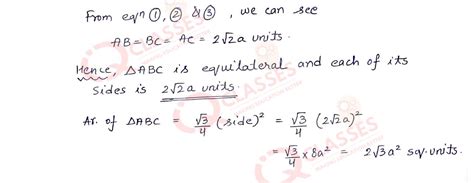 From eqn ①, ② & ③, we can see
AB = BC = AC = 2√2a units.
Hence, △ABC is equilateral and each of its
sides is 2√2a units.
Ar. of △ABC = √3/4 (side)² = √3/4 (2√2a)²
= √3/4 × 8a² = 2√3a² sq. units.
CLASSES
CLASSES